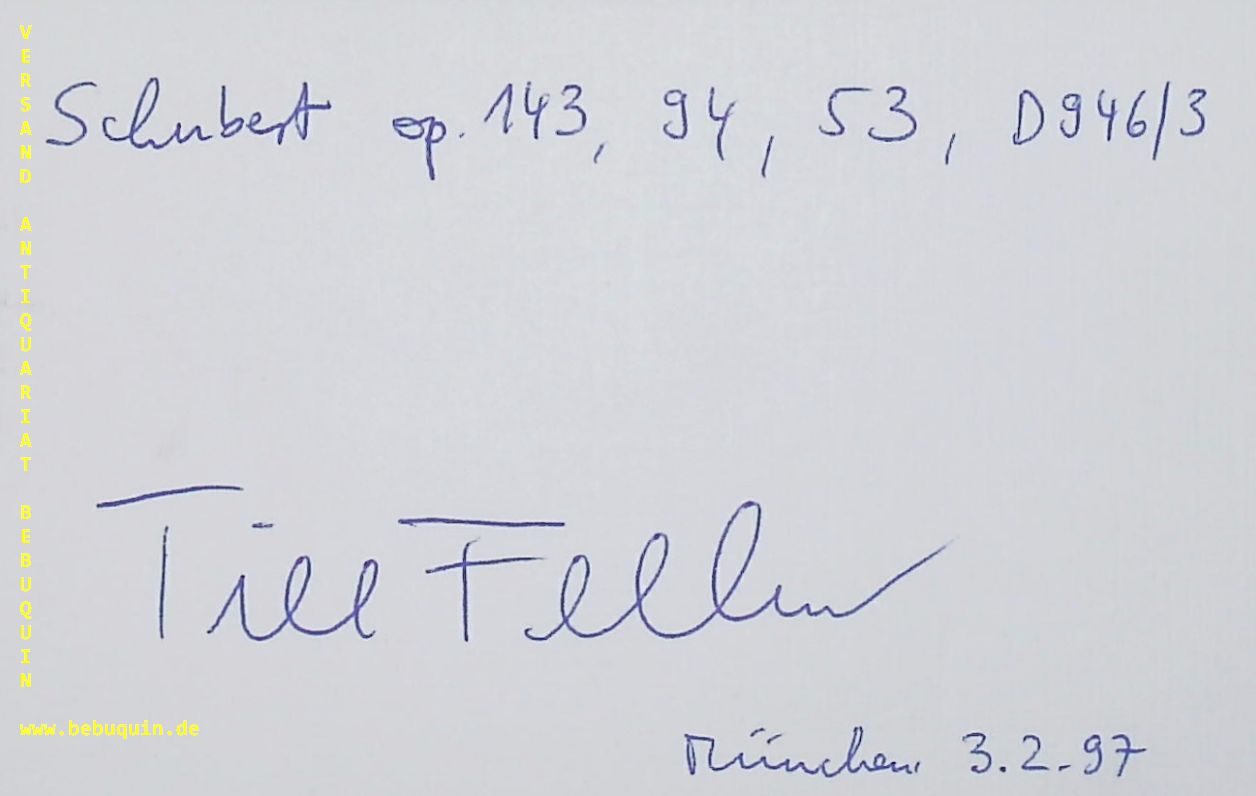 Schubert op. 143, 94, 53, D946/3
Till Fellner
München 3.2.97
VERSAND ANTIQUARIAT BEBUQUIN
www.bebuquin.de